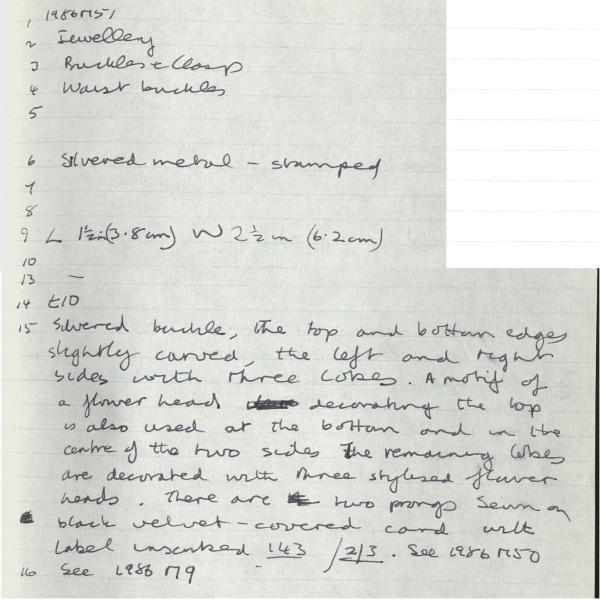 1 1986M51
2 Jewellery
3 Buckles + Clasp
4 Waist buckles
5
6 Silvered metal - stamped
7
8
9 L 1½in (3.8cm) W 2½ in (6.2cm)
10
13 —
14 £10
15 Silvered buckle, the top and bottom edges
slightly curved, the left and right
sides with three lobes. A motif of
a flower head decorating the top
is also used at the bottom and in the
centre of the two sides The remaining lobes
are decorated with three stylised flower
heads. There are two prongs Sewn on
black velvet-covered card with
label inscribed 143 /2/3. See 1986 M50
16 See 1986 M9